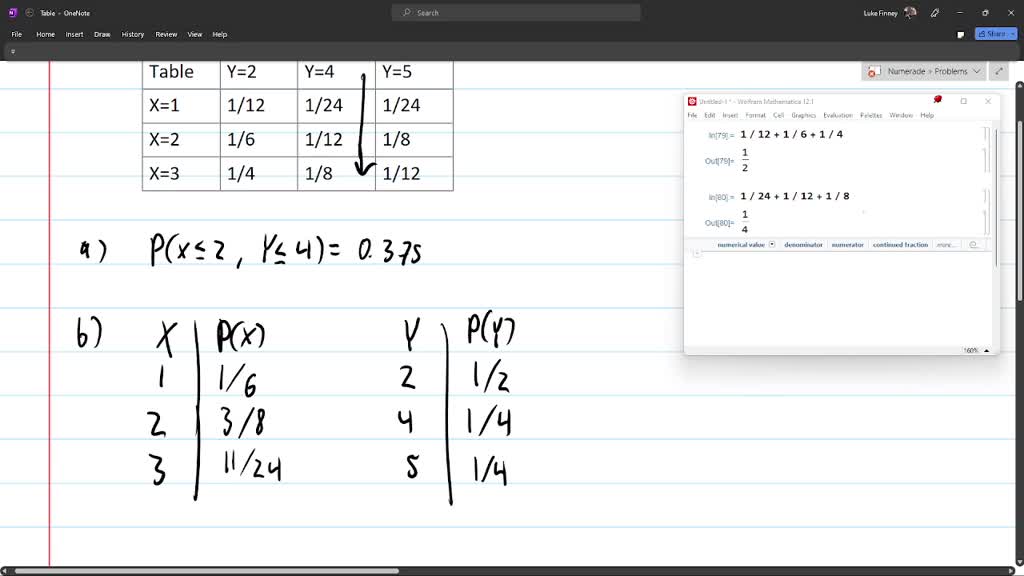 Table - OneNote
Search
Luke Finney
File Home Insert Draw History Review View Help
Share
Table Y=2 Y=4 Y=5
X=1 1/12 1/24 1/24
X=2 1/6 1/12 1/8
X=3 1/4 1/8 1/12
Numerade » Problems
Untitled-1 * - Wolfram Mathematica 12.1
File Edit Insert Format Cell Graphics Evaluation Palettes Window Help
In[79]:= 1 / 12 + 1 / 6 + 1 / 4
Out[79]= 1
2
In[80]:= 1 / 24 + 1 / 12 + 1 / 8
Out[80]= 1
4
numerical value denominator numerator continued fraction more...
160%
a) P(X≤2, Y≤4)= 0.375
b) X P(X) Y P(Y)
1 1/6 2 1/2
2 3/8 4 1/4
3 11/24 5 1/4